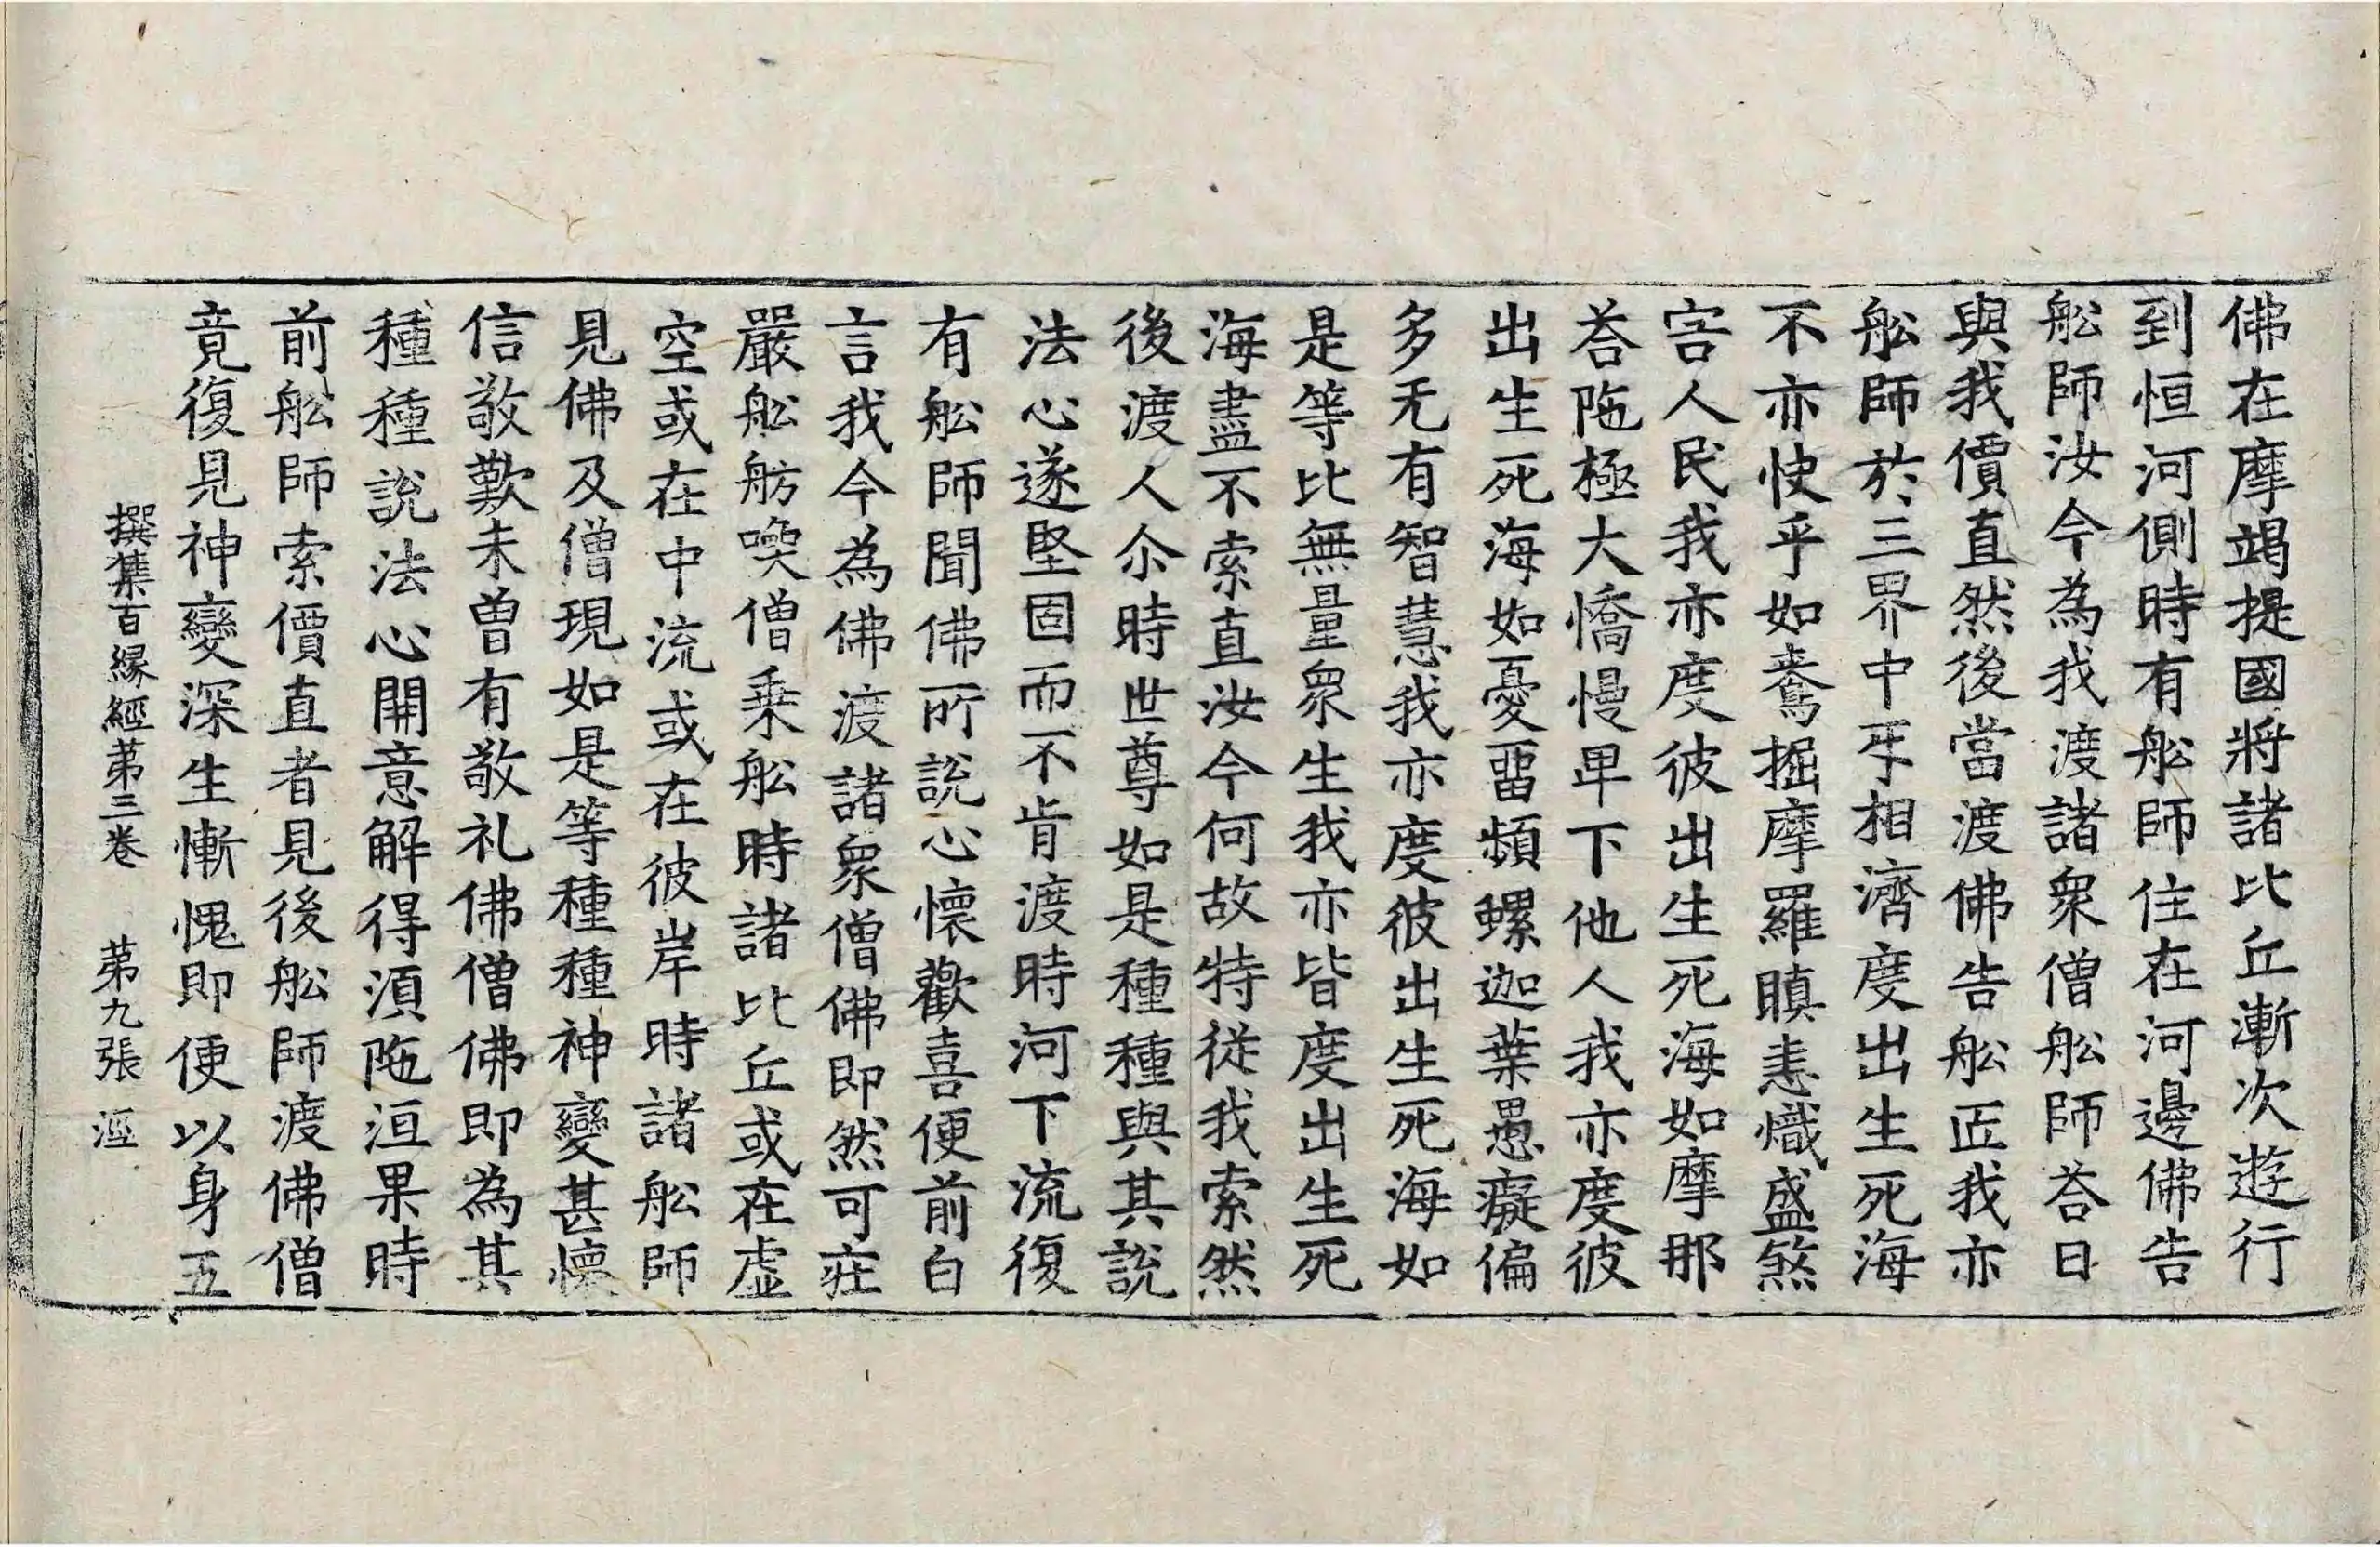 佛在摩竭提國將諸比丘漸次遊行
到恒河側時有舩師住在河邊佛告
舩師汝今為我渡諸衆僧舩師荅曰
與我價直然後當渡佛告舩师我亦
舩師於三界中㸦相濟度出生死海
不亦快乎如鴦掘摩羅瞋恚熾盛煞
害人民我亦度彼出生死海如摩那
荅陁極大憍慢卑下他人我亦度彼
出生死海如憂留頻螺迦葉愚癡偏
多无有智慧我亦度彼出生死海如
是等比無量衆生我亦皆度出生死
海盡不索直汝今何故特從我索然
後渡人尒時世尊如是種種與其說
法心遂堅固而不肯渡時河下流復
有舩師聞佛所說心懷歡喜便前白
言我今為佛渡諸衆僧佛即然可莊
嚴舩舫喚僧乗舩時諸比丘或在虛
空或在中流或在彼岸時諸舩師
見佛及僧現如是等種種神變甚懷
信敬歎未曽有敬礼佛僧佛即為其
種種說法心開意解得湏陁洹果時
前舩師索價直者見後舩師渡佛僧
竟復見神變深生慚愧即便以身五
撰集百縁經苐三卷　苐九張　涇